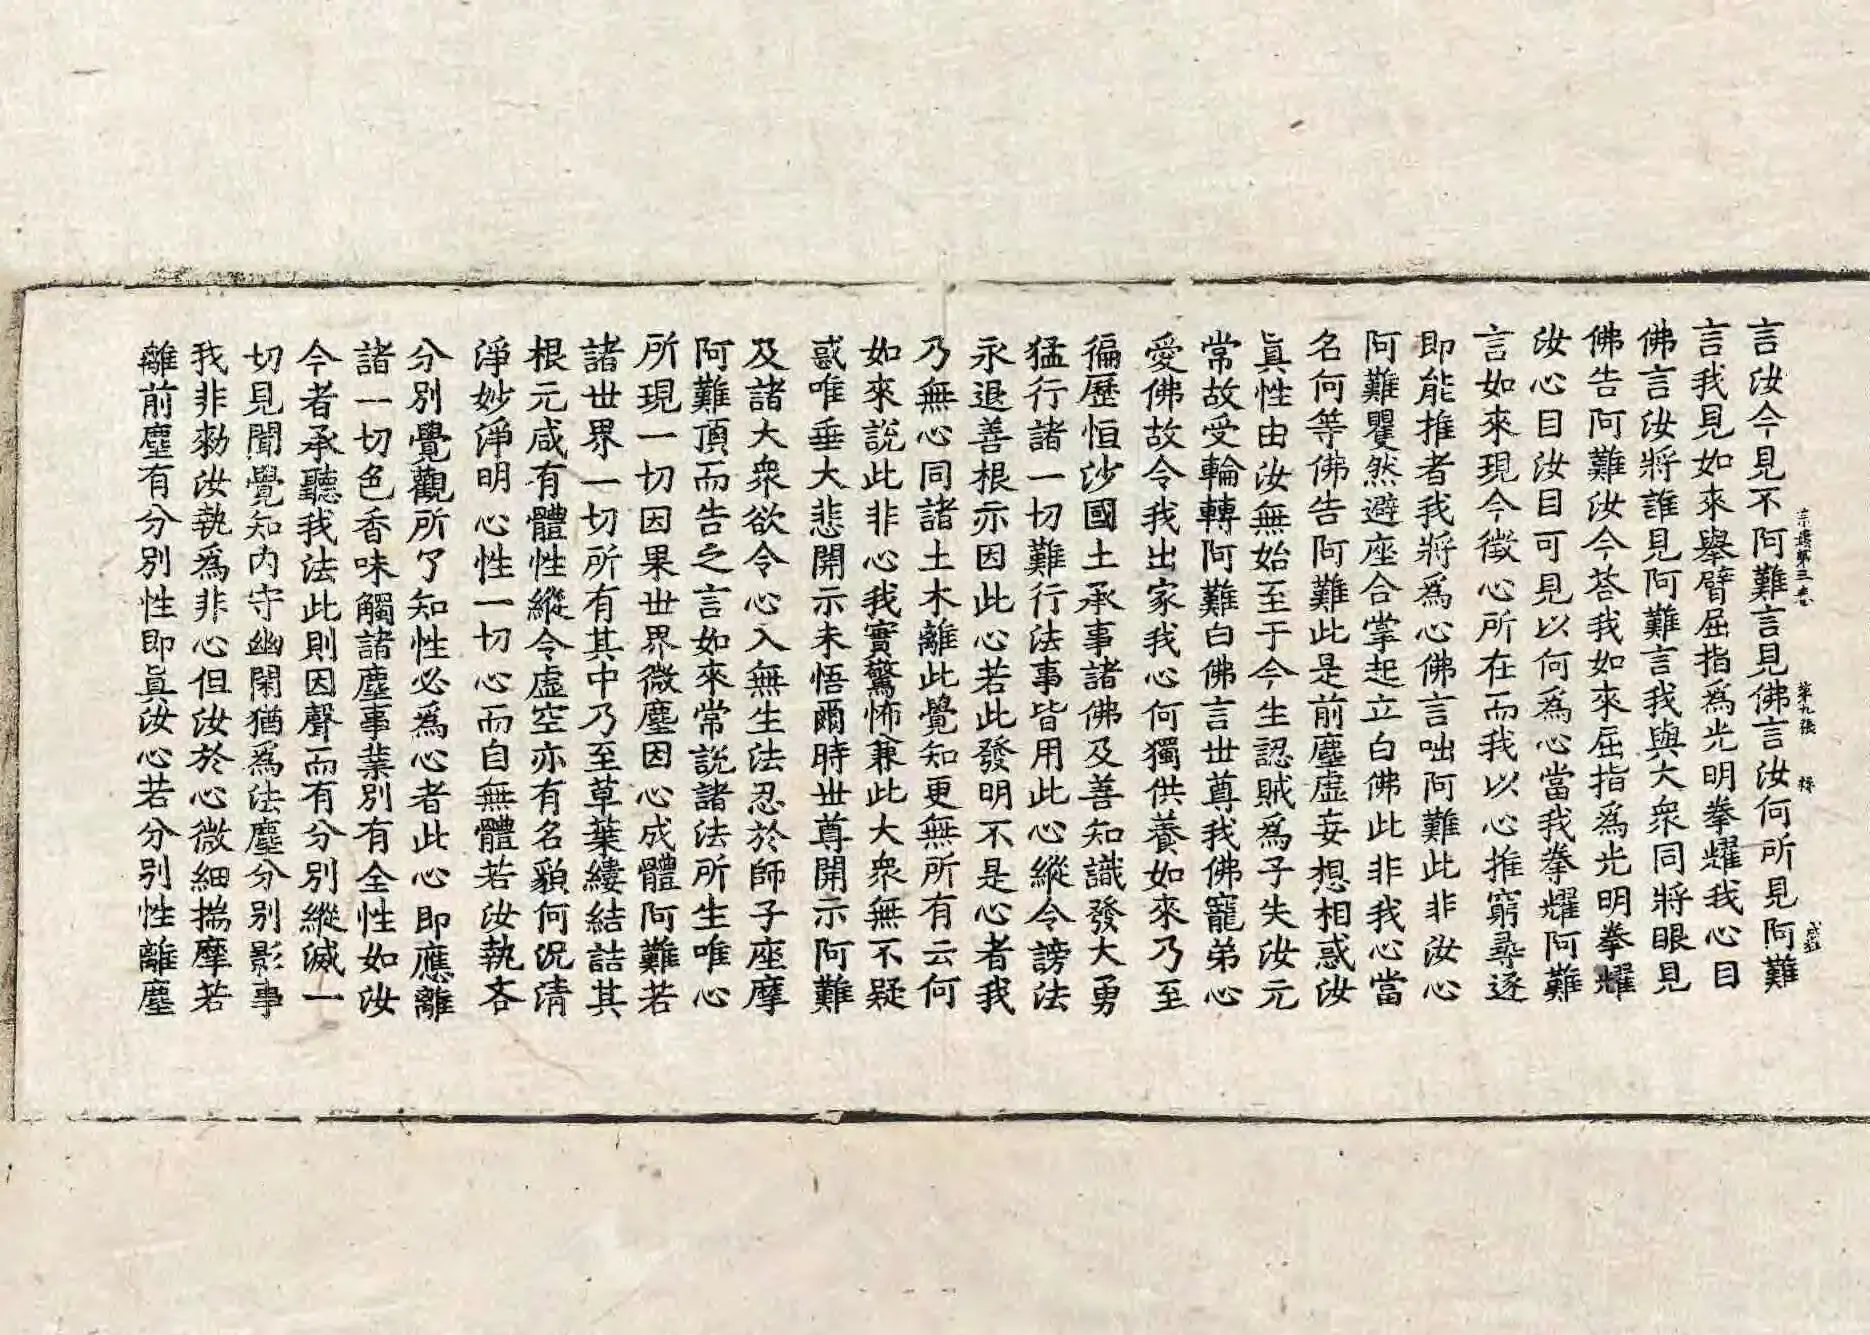 宗鏡第三卷 第九張
言汝今見不阿難言見佛言汝何所見阿難
言我見如來舉臂屈指爲光明拳耀我心目
佛言汝將誰見阿難言我與大衆同將眼見
佛告阿難汝今荅我如來屈指爲光明拳耀
汝心目汝目可見以何爲心當我拳耀阿難
言如來現今徵心所在而我以心推窮尋逐
即能推者我將爲心佛言咄阿難此非汝心
阿難矍然避座合掌起立白佛此非我心當
名何等佛告阿難此是前塵虛妄想相惑汝
眞性由汝無始至于今生認賊爲子失汝元
常故受輪轉阿難白佛言世尊我佛寵弟心
愛佛故令我出家我心何獨供養如來乃至
徧歷恒沙國土承事諸佛及善知識發大勇
猛行諸一切難行法事皆用此心縱令謗法
永退善根亦因此心若此發明不是心者我
乃無心同諸土木離此覺知更無所有云何
如來說此非心我實驚怖兼此大衆無不疑
惑唯垂大悲開示未悟爾時世尊開示阿難
及諸大衆欲令心入無生法忍於師子座摩
阿難頂而告之言如來常說諸法所生唯心
所現一切因果世界微塵因心成體阿難若
諸世界一切所有其中乃至草葉縷結詰其
根元咸有體性縱令虛空亦有名貌何況清
淨妙淨明心性一切心而自無體若汝執吝
分別覺觀所了知性必爲心者此心即應離
諸一切色香味觸諸塵事業別有全性如汝
今者承聽我法此則因聲而有分別縱滅一
切見聞覺知內守幽閑猶爲法塵分別影事
我非勑汝執爲非心但汝於心微細揣摩若
離前塵有分別性即眞汝心若分別性離塵